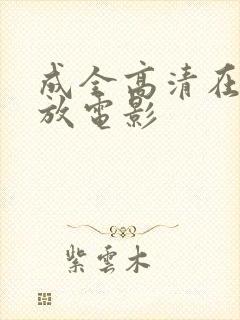 成全高清在
放電影
紫雲木